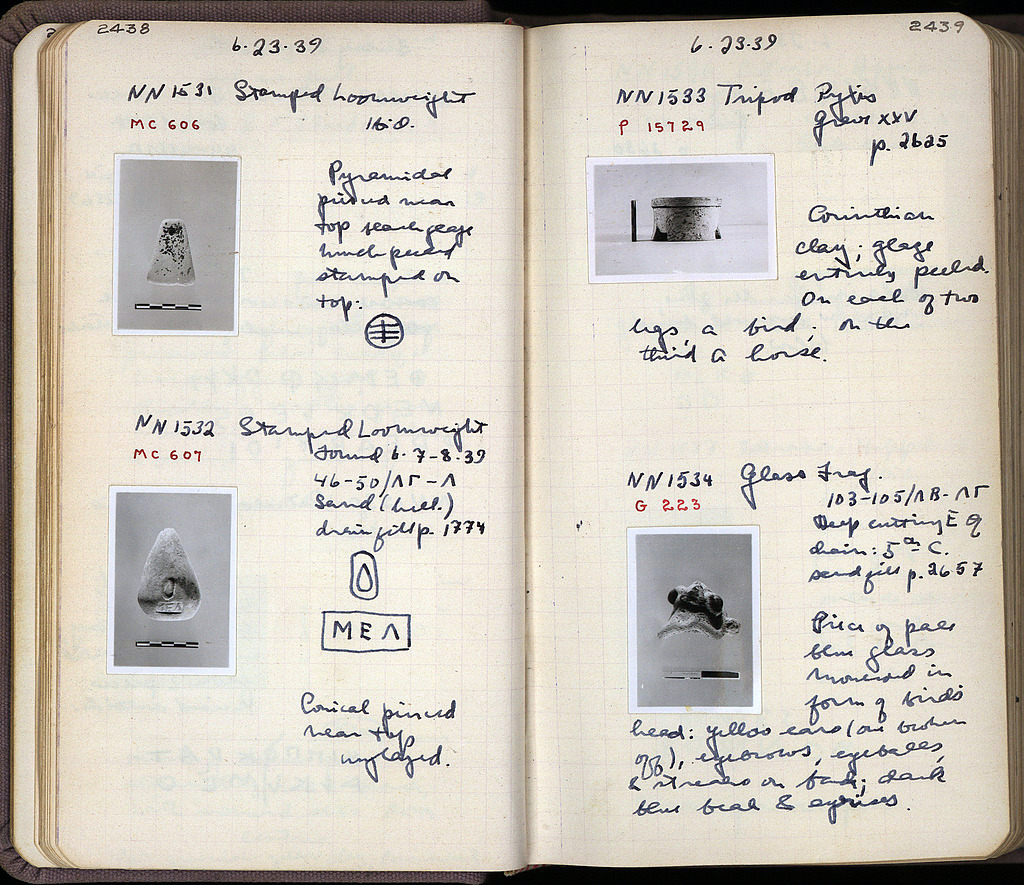 2438
6-23-39
NN 1531 Stamped Loomweight
MC 606
Pyramidal
pierced near
top
much peeled
stamped on
top:
NN 1532 Stamped Loomweight
MC 607
Found 6-7-8-39
46-50/ΛΓ-Λ
Sand
drain fill p. 1774
ΜΕΛ
Conical pierced
near top
unglazed.
2439
6-23-39
NN 1533 Tripod Pyxis
P 15729
Grave XXV
p. 2625
Corinthian
clay; glaze
entirely peeled.
On each of two
legs a bird; on the
third a horse.
NN 1534 Glass Frag.
G 223
103-105/ΛΒ-ΛΓ
Deep cutting E of
drain: 5th C.
sand fill p. 2657
Piece of pale
blue glass
in
form of bird's
head: yellow ears (one broken
off), eyebrows, eyeballs,
& streaks on; dark
blue beak & eyes.